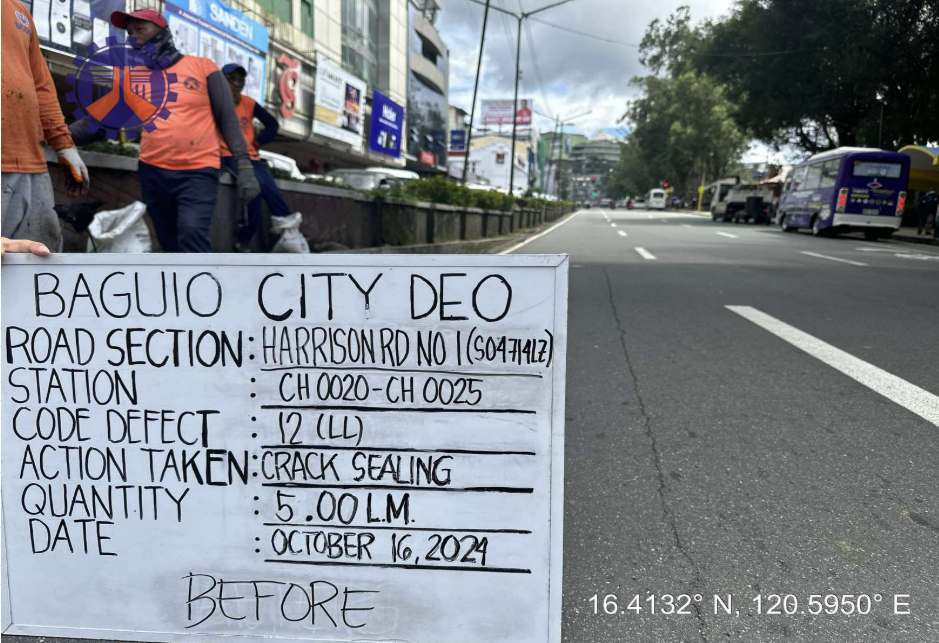 SANDEN
Haier
BAGUIO CITY DEO
ROAD SECTION : HARRISON RD NO 1 (S04714LZ)
STATION : CH 0020-CH 0025
CODE DEFECT : 12 (LL)
ACTION TAKEN : CRACK SEALING
QUANTITY : 5.00 L.M.
DATE : OCTOBER 16, 2024
BEFORE
16.4132° N, 120.5950° E